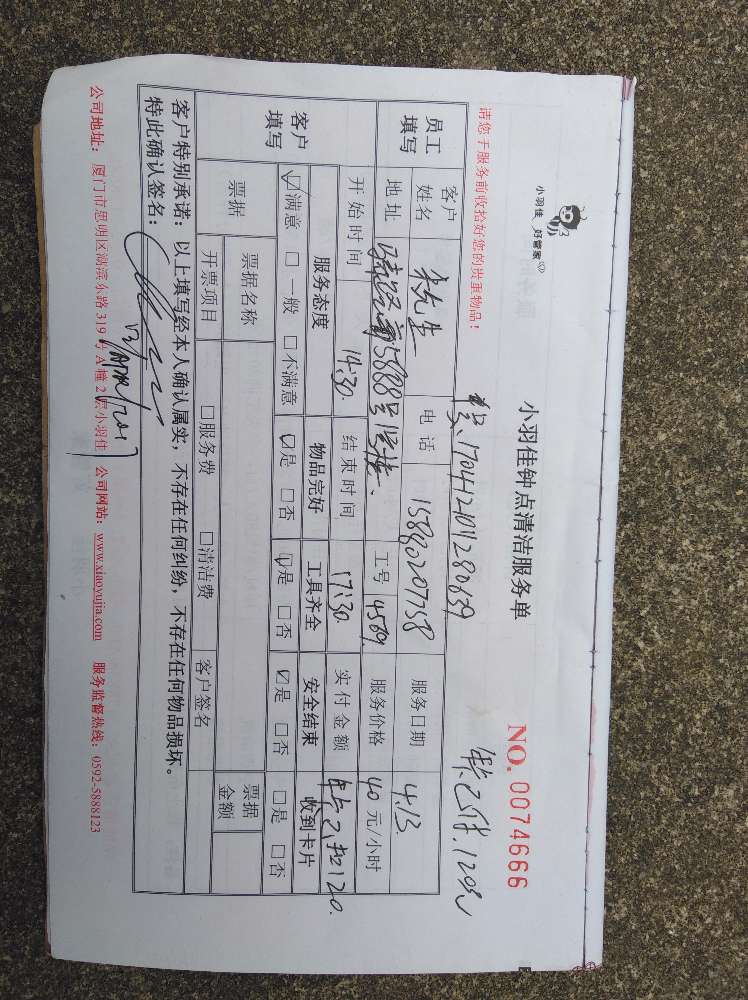 小羽佳 好管家
小羽佳钟点清洁服务单
NO. 0074666
请您于服务前收拾好您的贵重物品！
员工填写
客户姓名
先生
电话
15880207758
服务日期
4.13
地址
5888号
工号
4569
服务价格
40 元/小时
开始时间
14:30
结束时间
17:30
实付金额
120.
客户填写
服务态度
物品完好
工具齐全
安全结束
收到卡片
☑满意 □一般 □不满意
☑是 □否
☑是 □否
☑是 □否
□是 □否
票据
票据名称
票据金额
开票项目
□服务费 □清洁费
客户签名
客户特别承诺：以上填写经本人确认属实，不存在任何纠纷，不存在任何物品损坏。
特此确认签名：
公司地址：厦门市思明区湖滨东路319号A幢2层小羽佳 公司网站：www.xiaoyujia.com 服务监督热线：0592-5888123